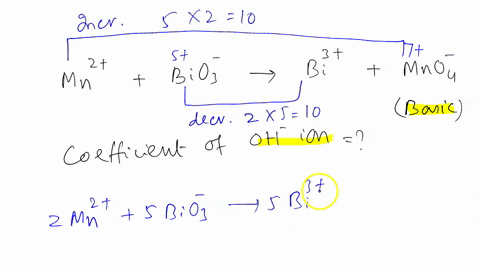 Incr. 5 × 2 = 10
5+ 7+
Mn²⁺ + BiO₃⁻ → Bi³⁺ + MnO₄⁻
decr. 2 × 5 = 10 (Basic)
Coefficient of OH⁻ ion = ?
2 Mn²⁺ + 5 BiO₃⁻ → 5 Bi³⁺